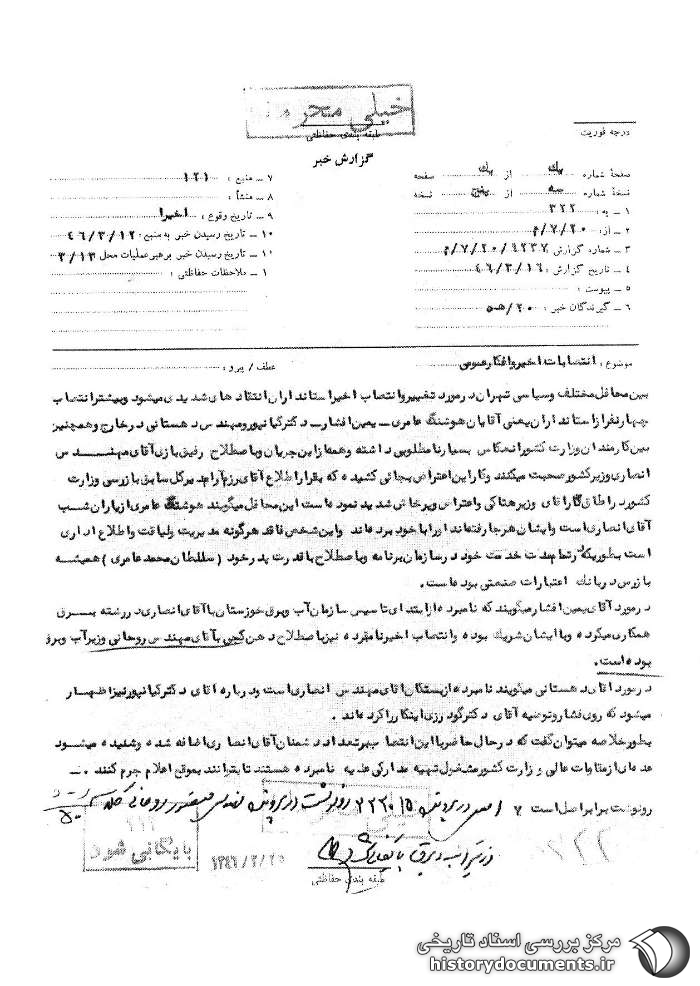 خیلی محرمانه
طبقه بندی حفاظتی
درجه فوریت
گزارش خبر
صفحهٔ شماره یک از یک صفحه
نسخهٔ شماره سه از پنج نسخه
۱ ــ به : ۳۲۲
۲ ــ از : ۲۰/۷/م
۳ ــ شماره گزارش ۴۲۳۷/۲۰/۷/م
۴ ــ تاریخ گزارش : ۴۶/۳/۱۶
۵ ــ پیوست :
۶ ــ گیرندگان خبر : ۲۰/هـ۵
۷ ــ منبع : ۱۲۱
۸ ــ منشأ :
۹ ــ تاریخ وقوع : اخیرا
۱۰ ــ تاریخ رسیدن خبر به منبع : ۴۶/۳/۱۲
۱۰ ــ تاریخ رسیدن خبر برهبر عملیات محل ۳/۱۳
۱ ــ ملاحظات حفاظتی :
موضوع : انتصابات اخیر و افکار عمومی
عطف / پیرو :
بین محافل مختلف و سیاسی تهران در مورد تغییر و انتصاب اخیر استانداران انتقادهای شدیدی میشود و بیشتر انتصاب
چهار نفر از استانداران یعنی آقایان هوشنگ عامری ــ یمین افشار ــ دکتر کیانپور و مهندس دهستانی در خارج و همچنین
بین کارمندان وزارت کشور انعکاس بسیار نامطلوبی داشته و همه از این جریان و باصطلاح رفیق بازی آقای مهندس
انصاری وزیر کشور صحبت میکنند و کار این اعتراض بجائی کشیده که بقرار اطلاع آقای رزم آرا مدیر کل سابق بازرسی وزارت
کشور در اطاق کار آقای وزیر هتاکی و اعتراض و پرخاش شدید نموده است این محافل میگویند هوشنگ عامری از یاران شب
آقای انصاری است و ایشان هر جا رفته‌اند او را با خود برده‌اند و این شخص فاقد هرگونه مدیریت و لیاقت و اطلاع اداری
است بطوریکه در تمام مدت خدمت خود در سازمان برنامه و باصطلاح با قدرت پدر خود ( سلطان محمد عامری ) همیشه
بازرس در بانک اعتبارات صنعتی بوده است.
در مورد آقای یمین افشار میگویند که نامبرده از ابتدای تاسیس سازمان آب و برق خوزستان با آقای انصاری در رشته برق
همکاری میکرده و با ایشان شریک بوده و انتصاب اخیر نامبرده نیز باصطلاح دهن کجی بآقای مهندس روحانی وزیر آب و برق
بوده است.
در مورد آقای دهستانی میگویند نامبرده از بستگان آقای مهندس انصاری است و درباره آقای دکتر کیانپور نیز اظهار
میشود که روی فشار و توصیه آقای دکتر گودرزی اینکار را کرده‌اند .
بطور خلاصه میتوان گفت که در حال حاضر با این انتصاب بر تعداد دشمنان آقای انصاری اضافه شده و شنیده میشود
عده‌ای از مقامات عالی وزارت کشور مشغول تهیه مدارکی علیه نامبرده هستند تا بتوانند بموقع اعلام جرم کنند . ــ
رونوشت برابر اصل است
بایگانی شود
۱۳۴۶/۳/۲۵
۳۲۲
طبقه بندی حفاظتی
مرکز بررسی اسناد تاریخی
historydocuments.ir